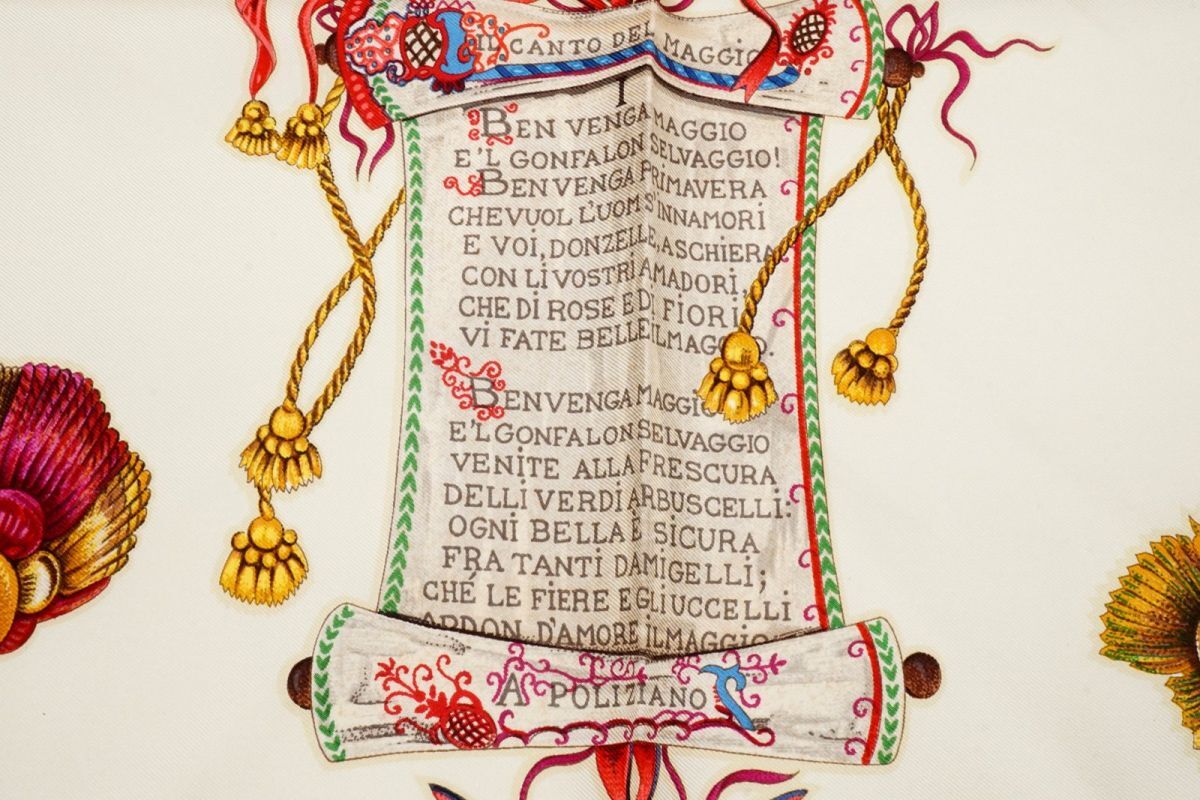 IL CANTO DEL MAGGIO
I
BEN VENGA MAGGIO
E'L GONFALON SELVAGGIO!
BEN VENGA PRIMAVERA
CHE VUOL L'UOM S'INNAMORI
E VOI, DONZELLE, A SCHIERA
CON LI VOSTRI AMADORI,
CHE DI ROSE E DI FIORI
VI FATE BELLE IL MAGGIO.
BEN VENGA MAGGIO
E'L GONFALON SELVAGGIO
VENITE ALLA FRESCURA
DELLI VERDI ARBUSCELLI:
OGNI BELLA È SICURA
FRA TANTI DAMIGELLI;
CHÉ LE FIERE E GLI UCCELLI
ARDON D'AMORE IL MAGGIO
A POLIZIANO